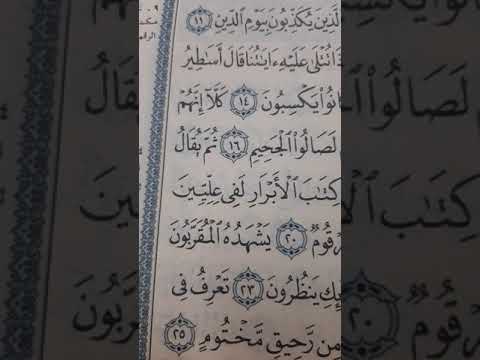 لَّذِينَ يُكَذِّبُونَ بِيَوۡمِ ٱلدِّينِ ١١
ذَا تُتۡلَىٰ عَلَيۡهِ ءَايَٰتُنَا قَالَ أَسَٰطِيرُ
انُواْ يَكۡسِبُونَ ١٤ كَلَّآ إِنَّهُمۡ
لَصَالُواْ ٱلۡجَحِيمِ ١٦ ثُمَّ يُقَالُ
كِتَٰبَ ٱلۡأَبۡرَارِ لَفِي عِلِّيِّينَ
رۡقُومٞ ٢٠ يَشۡهَدُهُ ٱلۡمُقَرَّبُونَ
ئِكِ يَنظُرُونَ ٢٣ تَعۡرِفُ فِي
مِن رَّحِيقٖ مَّخۡتُومٍ ٢٥